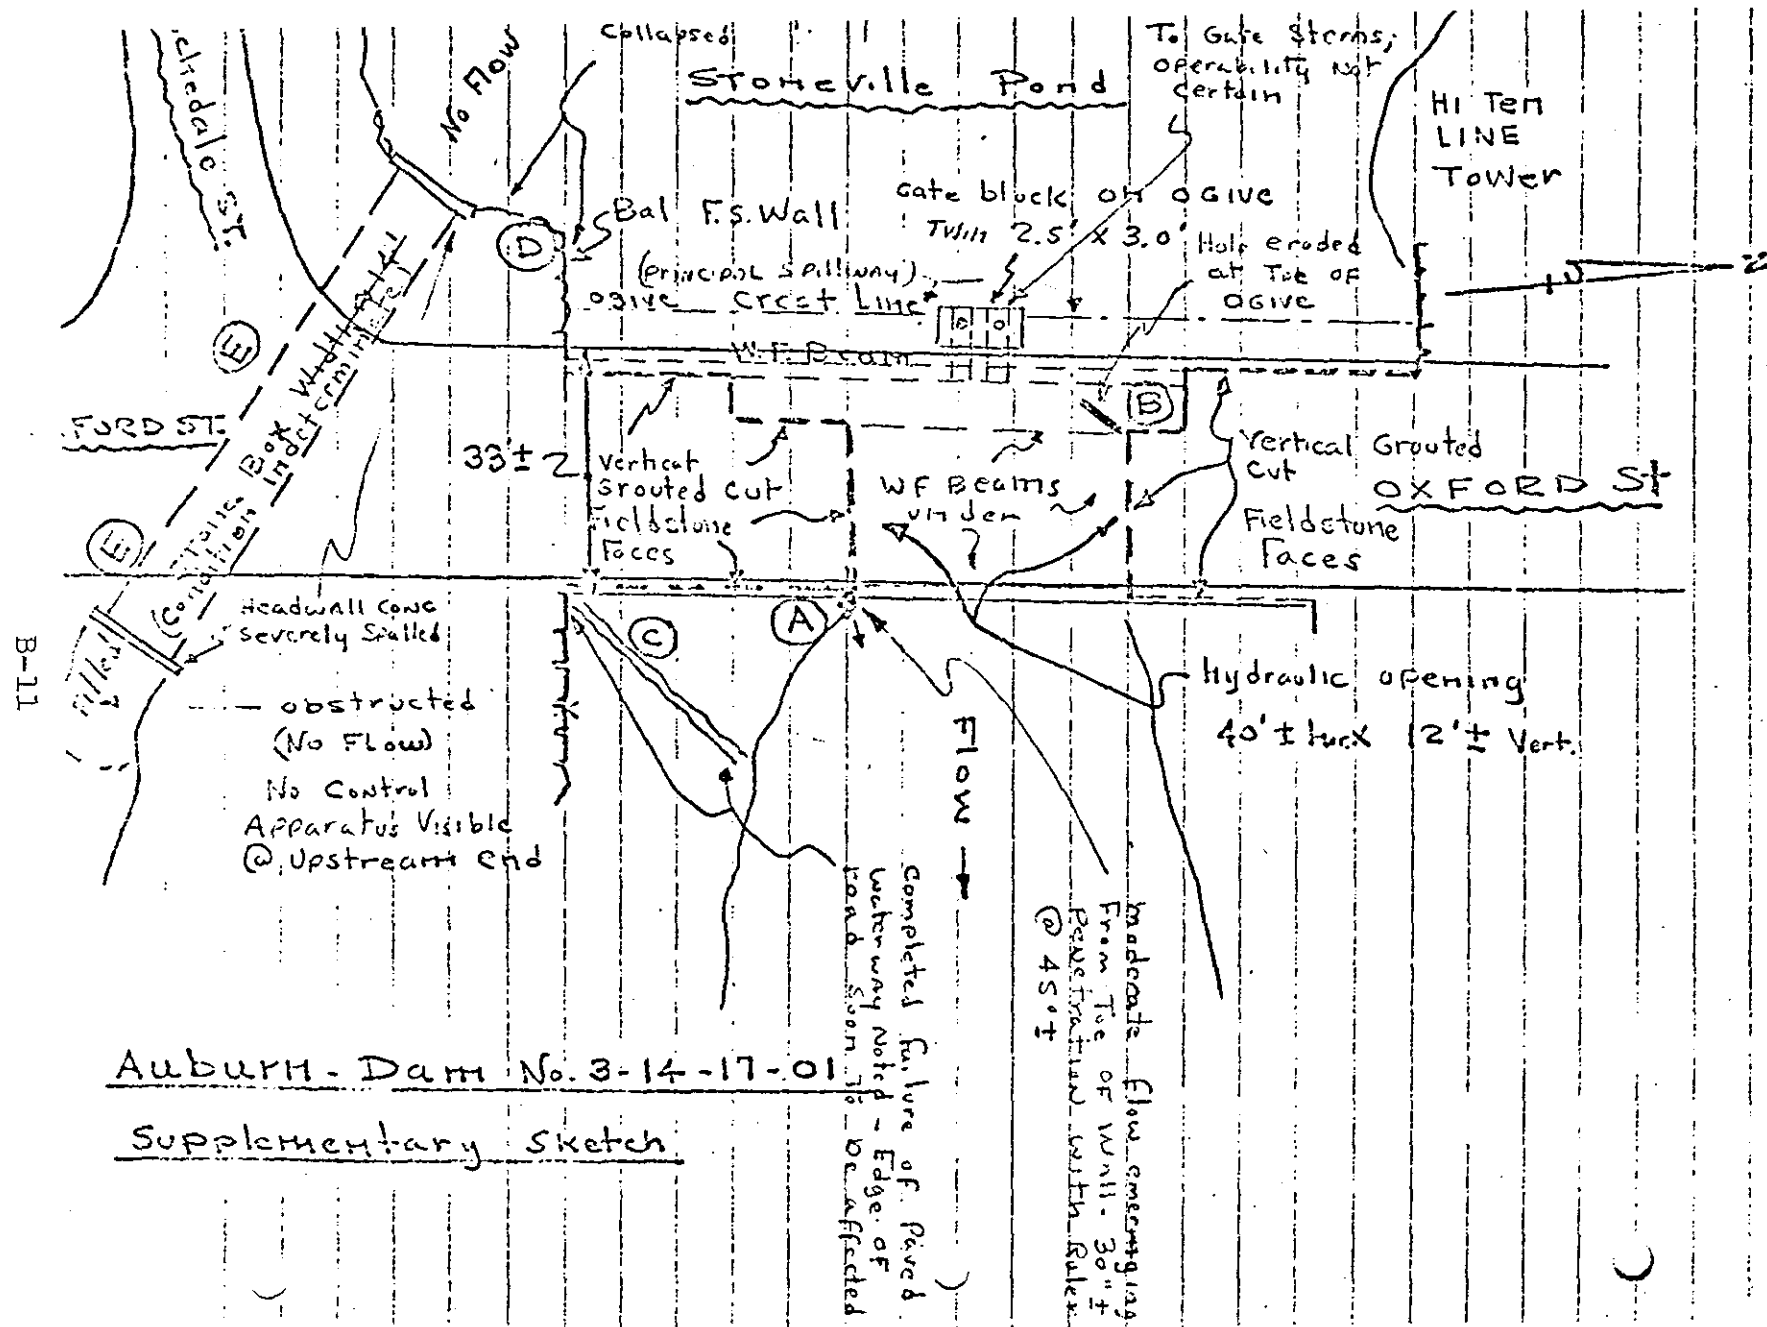 chedale ST.
No Flow
Collapsed
Stoneville Pond
To Gate Stems;
operability Not
Certain
HI Ten
LINE
Tower
Bal F.S. Wall
Gate block on OGIVE
Twin 2.5' x 3.0'
Hole eroded
at Toe of
OGIVE
(principal spillway)
OGIVE Crest Line
W.F. Beam
D
E
B
FORD ST.
Stone Box Width 4'±
(Condition indeterminate)
33'±
Vertical
Grouted Cut
Fieldstone
Faces
WF Beams
under
Vertical Grouted
Cut
Fieldstone
Faces
OXFORD St
E
Headwall Conc
Severely Spalled
C
A
Filled
B-11
obstructed
(No Flow)
No Control
Apparatus Visible
@ Upstream end
Hydraulic opening
40'± x 12'± Vert.
Flow
Completed failure of Paved
waterway Noted - Edge of
road soon to be affected
moderate flow emerging
From Toe of Wall - 30"±
Penetration with Ruler
@ 45°±
Auburn - Dam No. 3-14-17-01
Supplementary Sketch